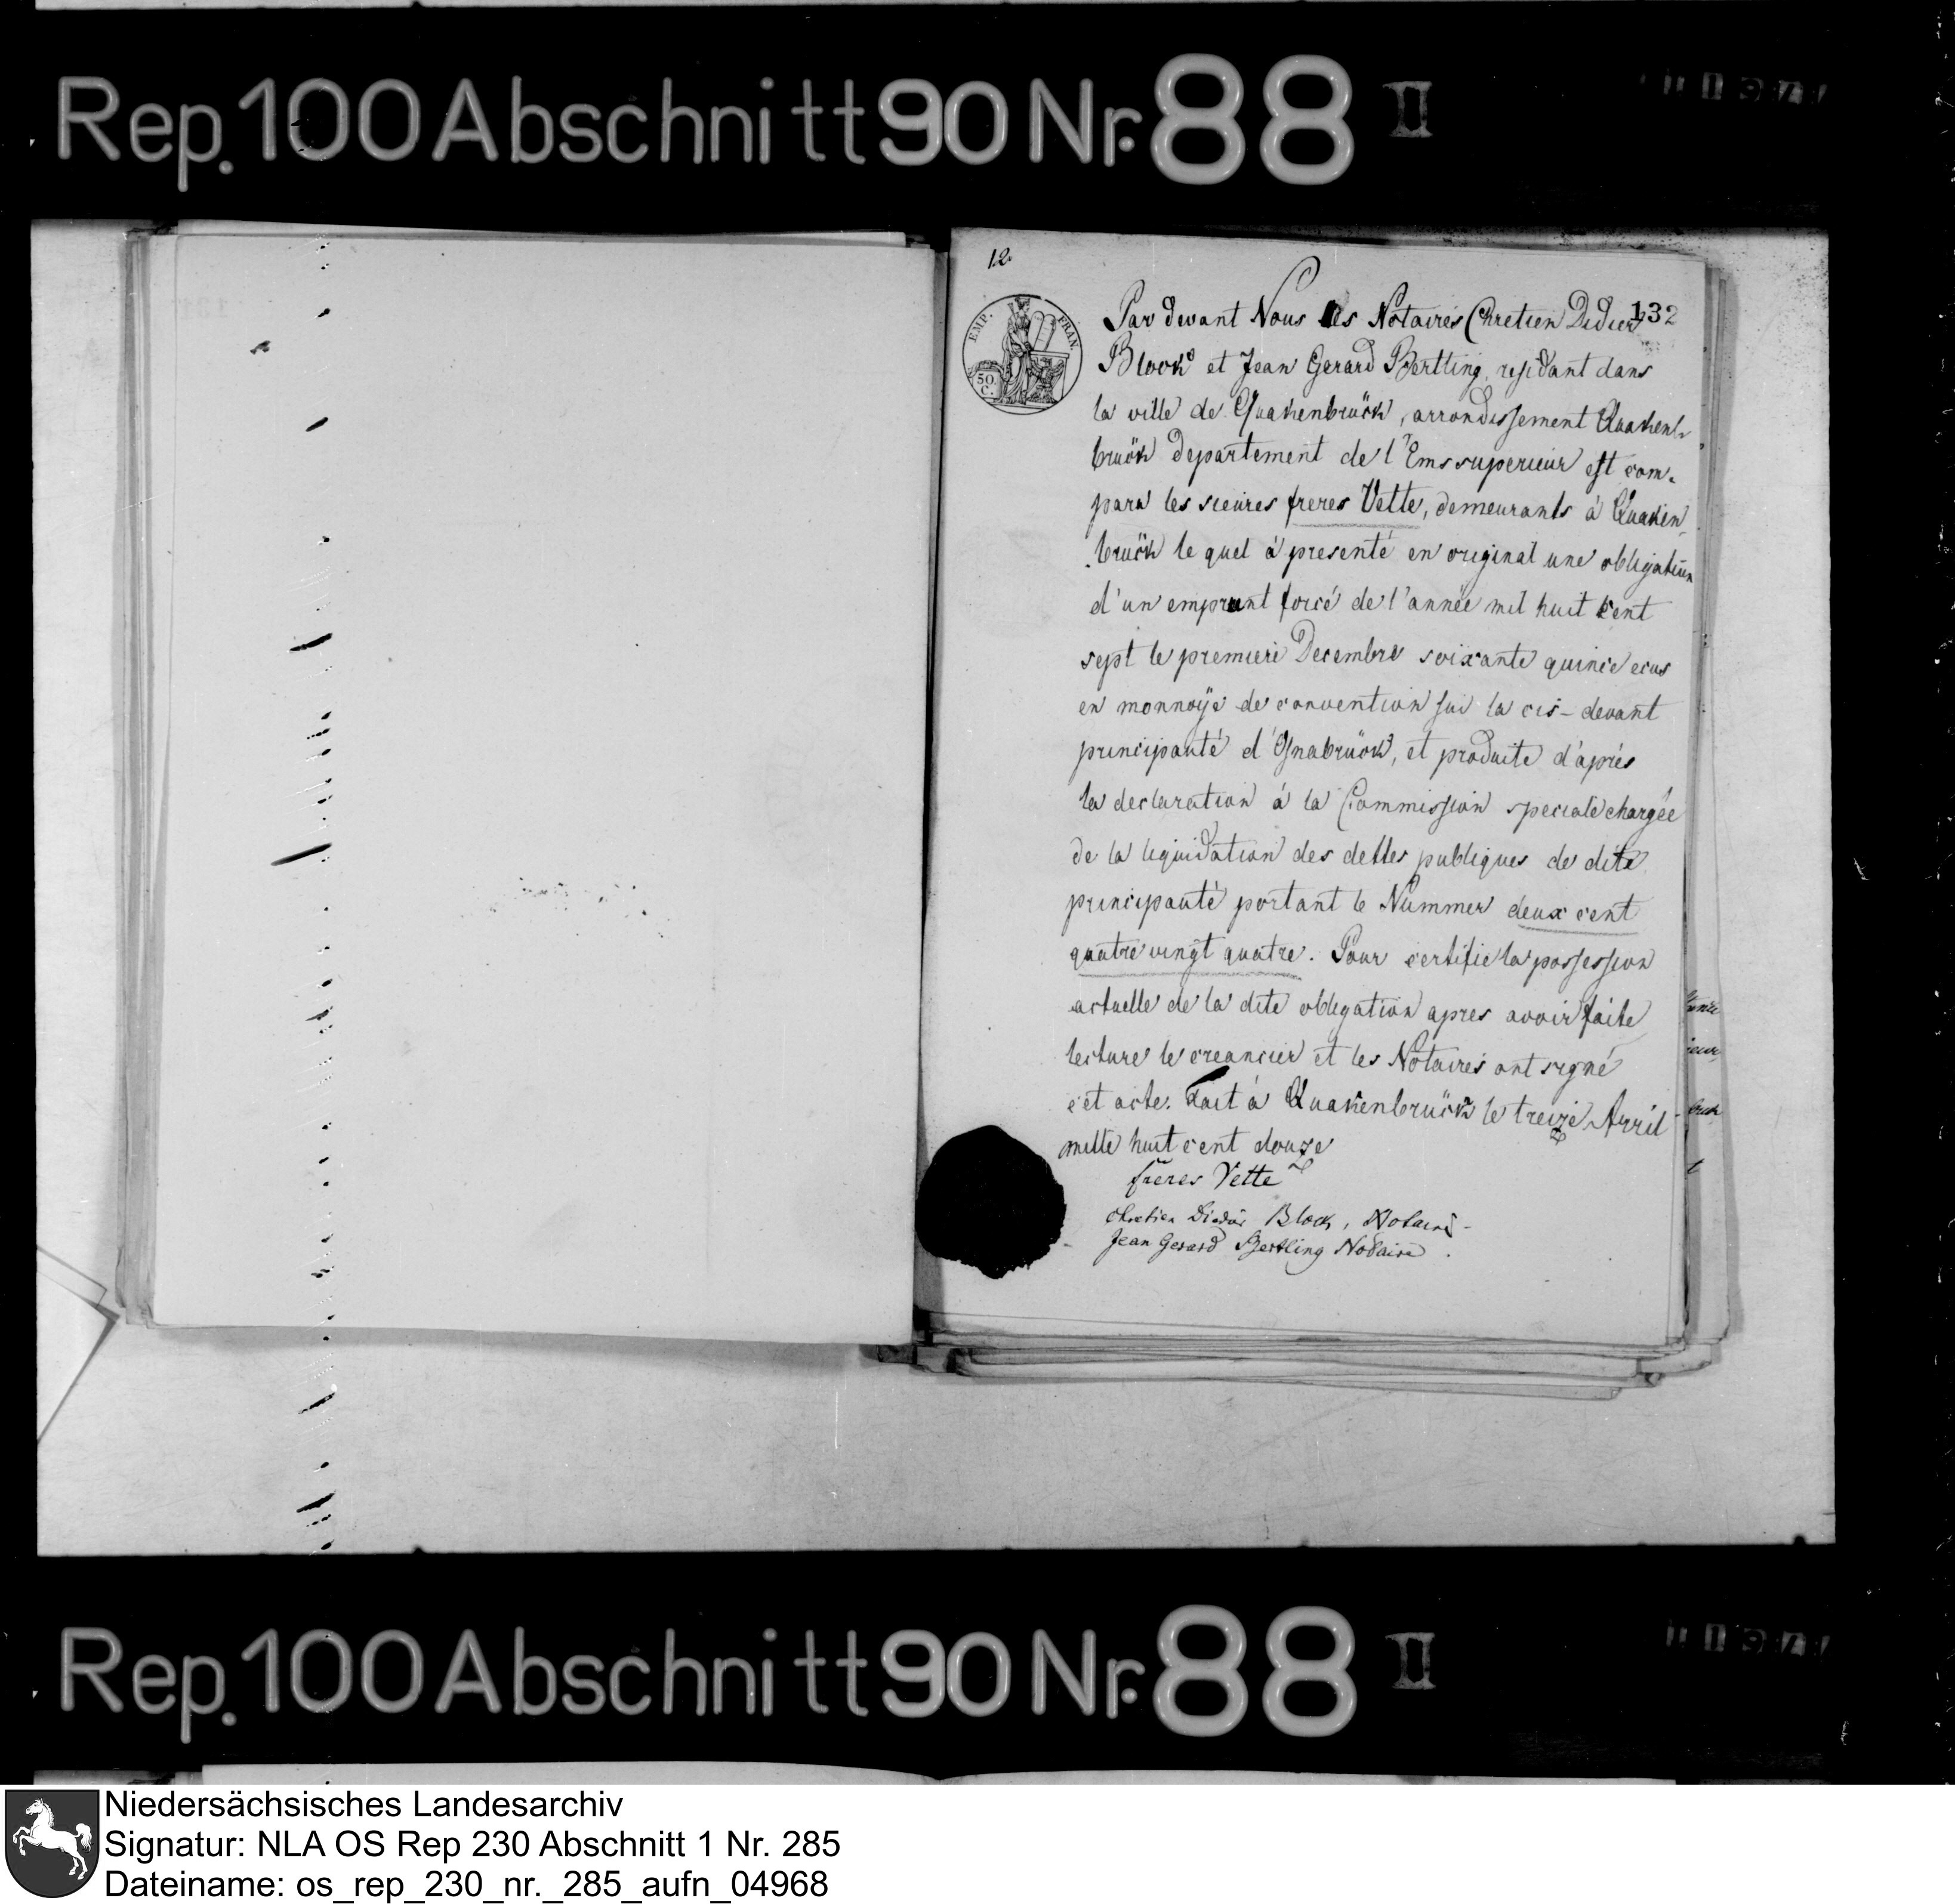 Rep. 100 Abschnitt 90 Nr. 88 II
12.
132
EMP. FRAN.
50. C.
Par devant Nous les Notaires Chretien Didier
Block et Jean Gerard Bertling, residant dans
la ville de Quakenbrück, arrondissement Quakenb
brück departement de l'Ems superieur est com-
paru les sieures freres Vette, demeurants á Quaken
brück le quel á presenté en original une obligation
d'un emprunt forcé de l'année mil huit cent
sept le premiere Decembre soixante quince ecus
en monnoÿe de convention sur la cis-devant
principauté d'Osnabrück, et produite d'aprés
la declaration á la Commission speciale chargée
de la liquidation des dettes publiques de dite
principauté portant le Nummer deux cent
quatre vingt quatre. Pour certifie la possession
actuelle de la dite obligation apres avoir faite
lecture le creancier et les Notaires ont signé
cet acte. Fait á Quakenbrück le treize Avril
mille huit cent douze
freres Vette
Chretien Didier Block, Notaire
Jean Gerard Bertling Notaire.
Rep. 100 Abschnitt 90 Nr. 88 II
Niedersächsisches Landesarchiv
Signatur: NLA OS Rep 230 Abschnitt 1 Nr. 285
Dateiname: os_rep_230_nr._285_aufn_04968